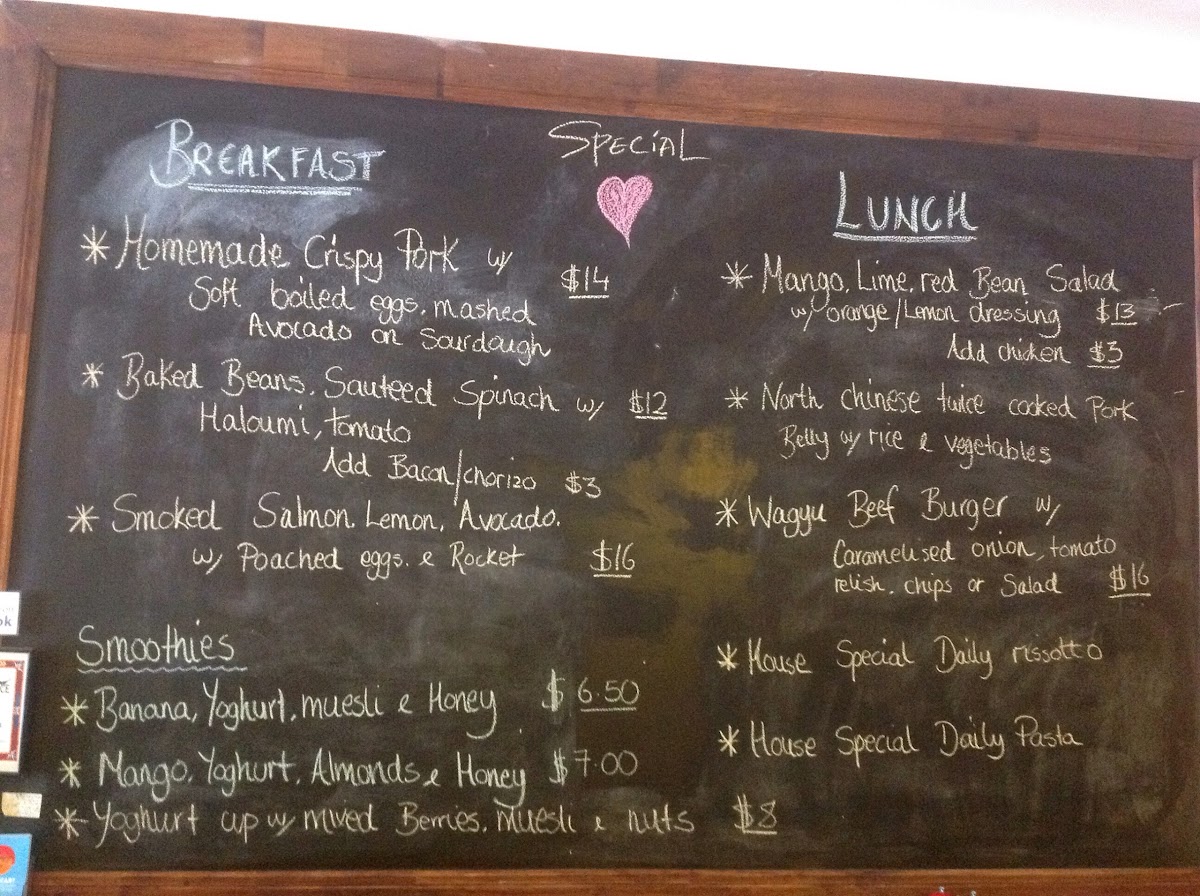 SPECIAL
BREAKFAST
* Homemade Crispy Pork w/ $14
Soft boiled eggs, mashed
Avocado on Sourdough
* Baked Beans, Sauteed Spinach w/ $12
Haloumi, tomato
Add Bacon/chorizo $3
* Smoked Salmon, Lemon, Avocado,
w/ Poached eggs, & Rocket $16
Smoothies
* Banana, Yoghurt, muesli & Honey $6.50
* Mango, Yoghurt, Almonds & Honey $7.00
* Yoghurt cup w/ mixed Berries, Muesli & nuts $8
LUNCH
* Mango, Lime, red Bean Salad
w/ orange/Lemon dressing $13
Add chicken $3
* North chinese twice cooked Pork
Belly w/ rice & vegetables
* Wagyu Beef Burger w/
Caramelised onion, tomato
relish, chips or Salad $16
* House Special Daily rissotto
* House Special Daily Pasta